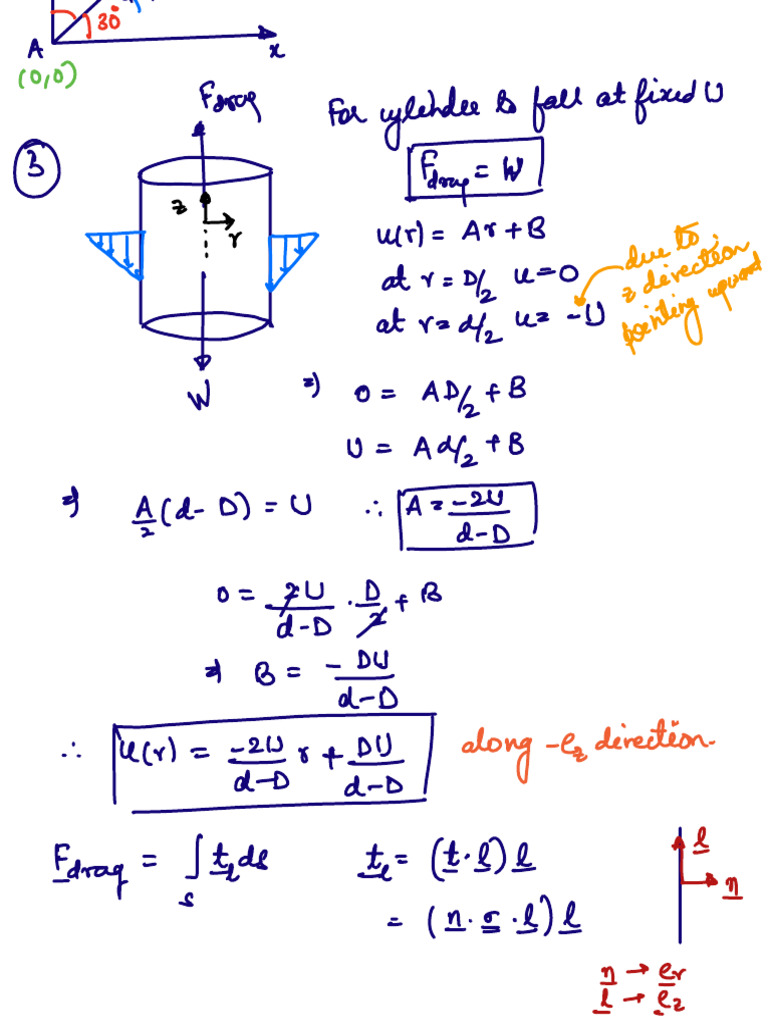 30°
A
x
(0,0)
3
F_drag
For cylinder to fall at fixed U
F_drag = W
z
r
u(r) = Ar + B
at r = D/2 u = 0
at r = d/2 u = -U
due to
z direction
pointing upward
W
⇒ 0 = AD/2 + B
U = Ad/2 + B
⇒ A/2 (d - D) = U ∴ A = -2U/(d-D)
0 = 2U/(d-D) · D/2 + B
⇒ B = -DU/(d-D)
∴ u(r) = -2U/(d-D) r + DU/(d-D) along -e_z direction.
F_drag = ∫_s t_l ds t_l = (t · l) l
= (n · σ · l) l
l
n
n → e_r
l → e_z